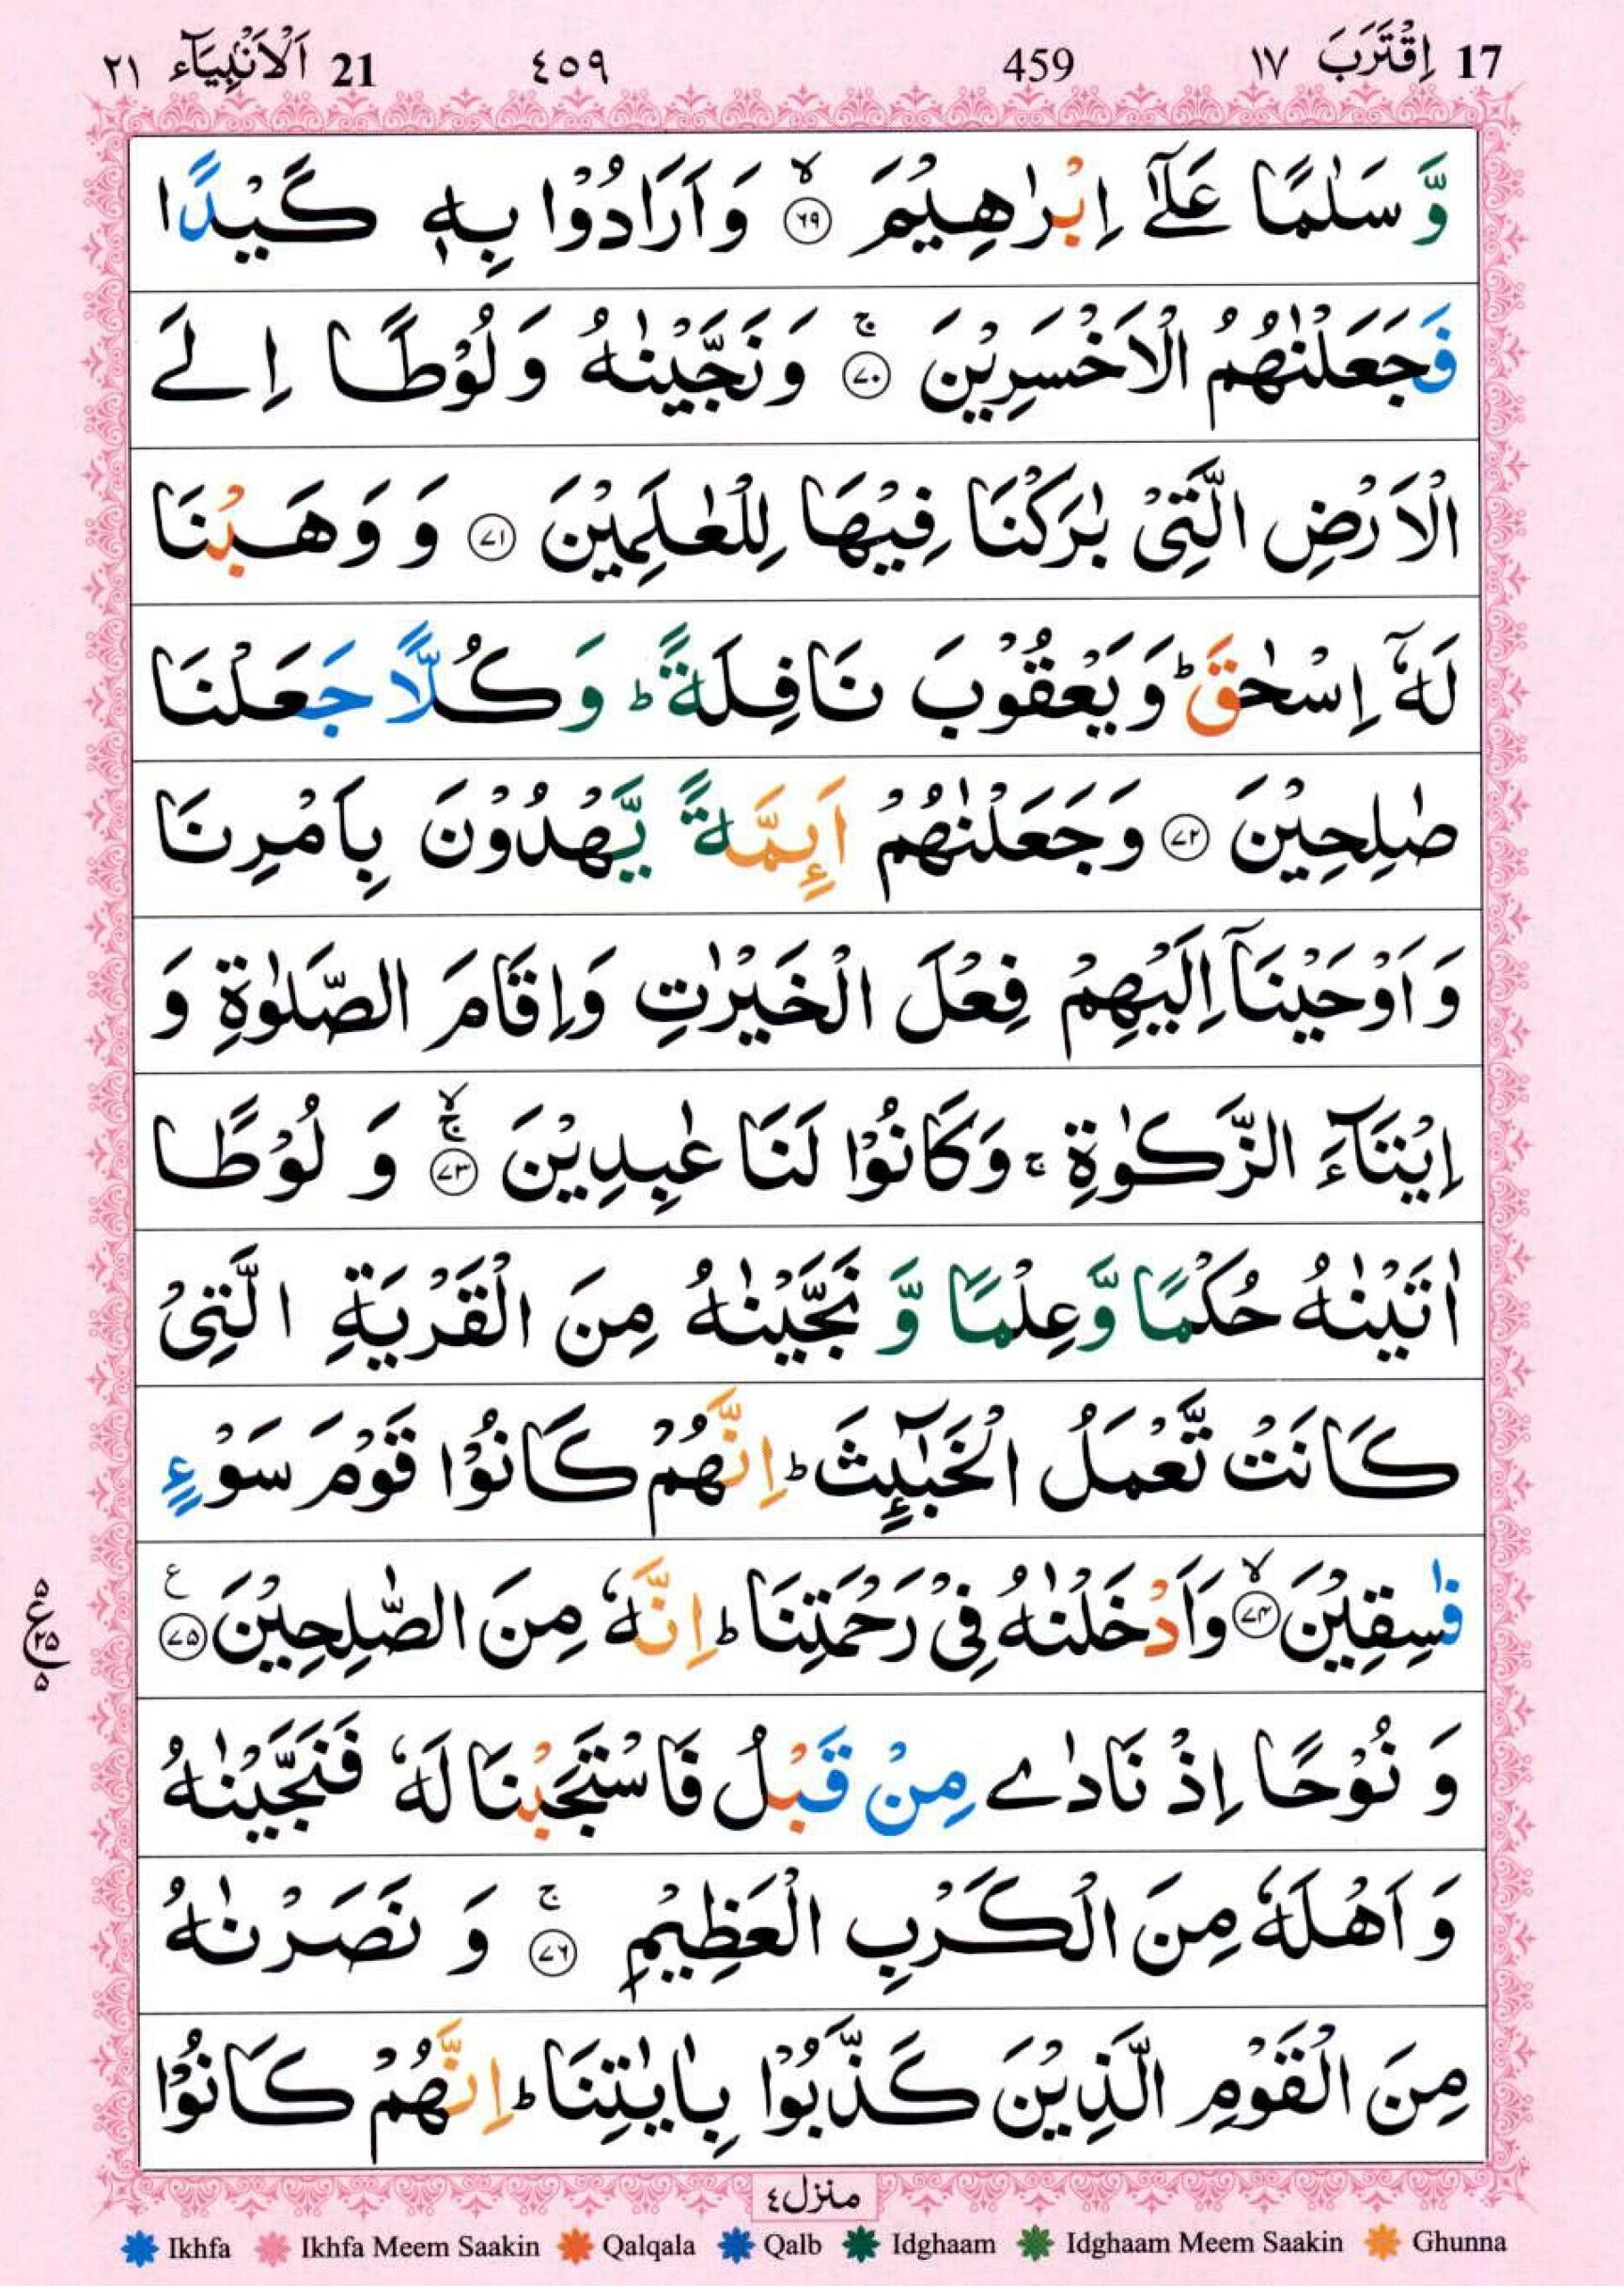 17 اِقْتَرَبَ ١٧ 459 ٤٥٩ 21 اَلْاَنْۢبِيَآء ٢١
وَّ سَلٰمًا عَلٰٓى اِبْرٰهِيْمَ ۙ﴿٦٩﴾ وَ اَرَادُوْا بِهٖ كَيْدًا
فَجَعَلْنٰهُمُ الْاَخْسَرِيْنَ ۚ﴿٧٠﴾ وَ نَجَّيْنٰهُ وَ لُوْطًا اِلَى
الْاَرْضِ الَّتِيْ بٰرَكْنَا فِيْهَا لِلْعٰلَمِيْنَ ﴿٧١﴾ وَ وَهَبْنَا
لَهٗۤ اِسْحٰقَ ؕ وَ يَعْقُوْبَ نَافِلَةً ؕ وَ كُلًّا جَعَلْنَا
صٰلِحِيْنَ ﴿٧٢﴾ وَ جَعَلْنٰهُمْ اَئِمَّةً يَّهْدُوْنَ بِاَمْرِنَا
وَ اَوْحَيْنَاۤ اِلَيْهِمْ فِعْلَ الْخَيْرٰتِ وَ اِقَامَ الصَّلٰوةِ وَ
اِيْتَآءَ الزَّكٰوةِ ۚ وَ كَانُوْا لَنَا عٰبِدِيْنَ ۚۙ﴿٧٣﴾ وَ لُوْطًا
اٰتَيْنٰهُ حُكْمًا وَّ عِلْمًا وَّ نَجَّيْنٰهُ مِنَ الْقَرْيَةِ الَّتِيْ
كَانَتْ تَّعْمَلُ الْخَبٰٓئِثَ ؕ اِنَّهُمْ كَانُوْا قَوْمَ سَوْءٍ
فٰسِقِيْنَ ۙ﴿٧٤﴾ وَ اَدْخَلْنٰهُ فِيْ رَحْمَتِنَا ؕ اِنَّهٗ مِنَ الصّٰلِحِيْنَ ﴿٧٥﴾ ع
٥ ع ٢٥ ٥
وَ نُوْحًا اِذْ نَادٰى مِنْ قَبْلُ فَاسْتَجَبْنَا لَهٗ فَنَجَّيْنٰهُ
وَ اَهْلَهٗ مِنَ الْكَرْبِ الْعَظِيْمِ ۚ﴿٧٦﴾ وَ نَصَرْنٰهُ
مِنَ الْقَوْمِ الَّذِيْنَ كَذَّبُوْا بِاٰيٰتِنَا ؕ اِنَّهُمْ كَانُوْا
منزل ٤
Ikhfa Ikhfa Meem Saakin Qalqala Qalb Idghaam Idghaam Meem Saakin Ghunna